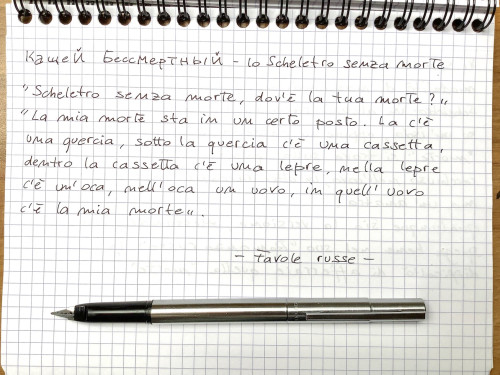 Кащей Бессмертный - lo Scheletro senza morte
"Scheletro senza morte, dov'è la tua morte?"
"La mia morte sta in un certo posto. La c'è
una quercia, sotto la quercia c'è una cassetta,
dentro la cassetta c'è una lepre, nella lepre
c'è un'oca, nell'oca un uovo, in quell'uovo
c'è la mia morte".
- Favole russe -